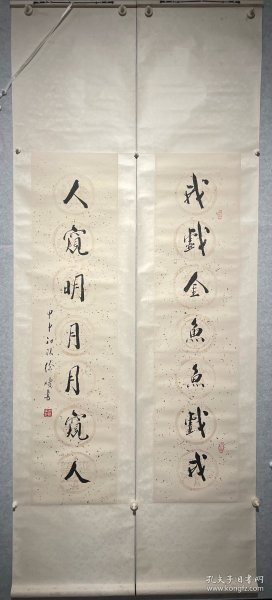 我戲金魚魚戲我
人窺明月月窺人
甲申初秋
孔夫子旧书网